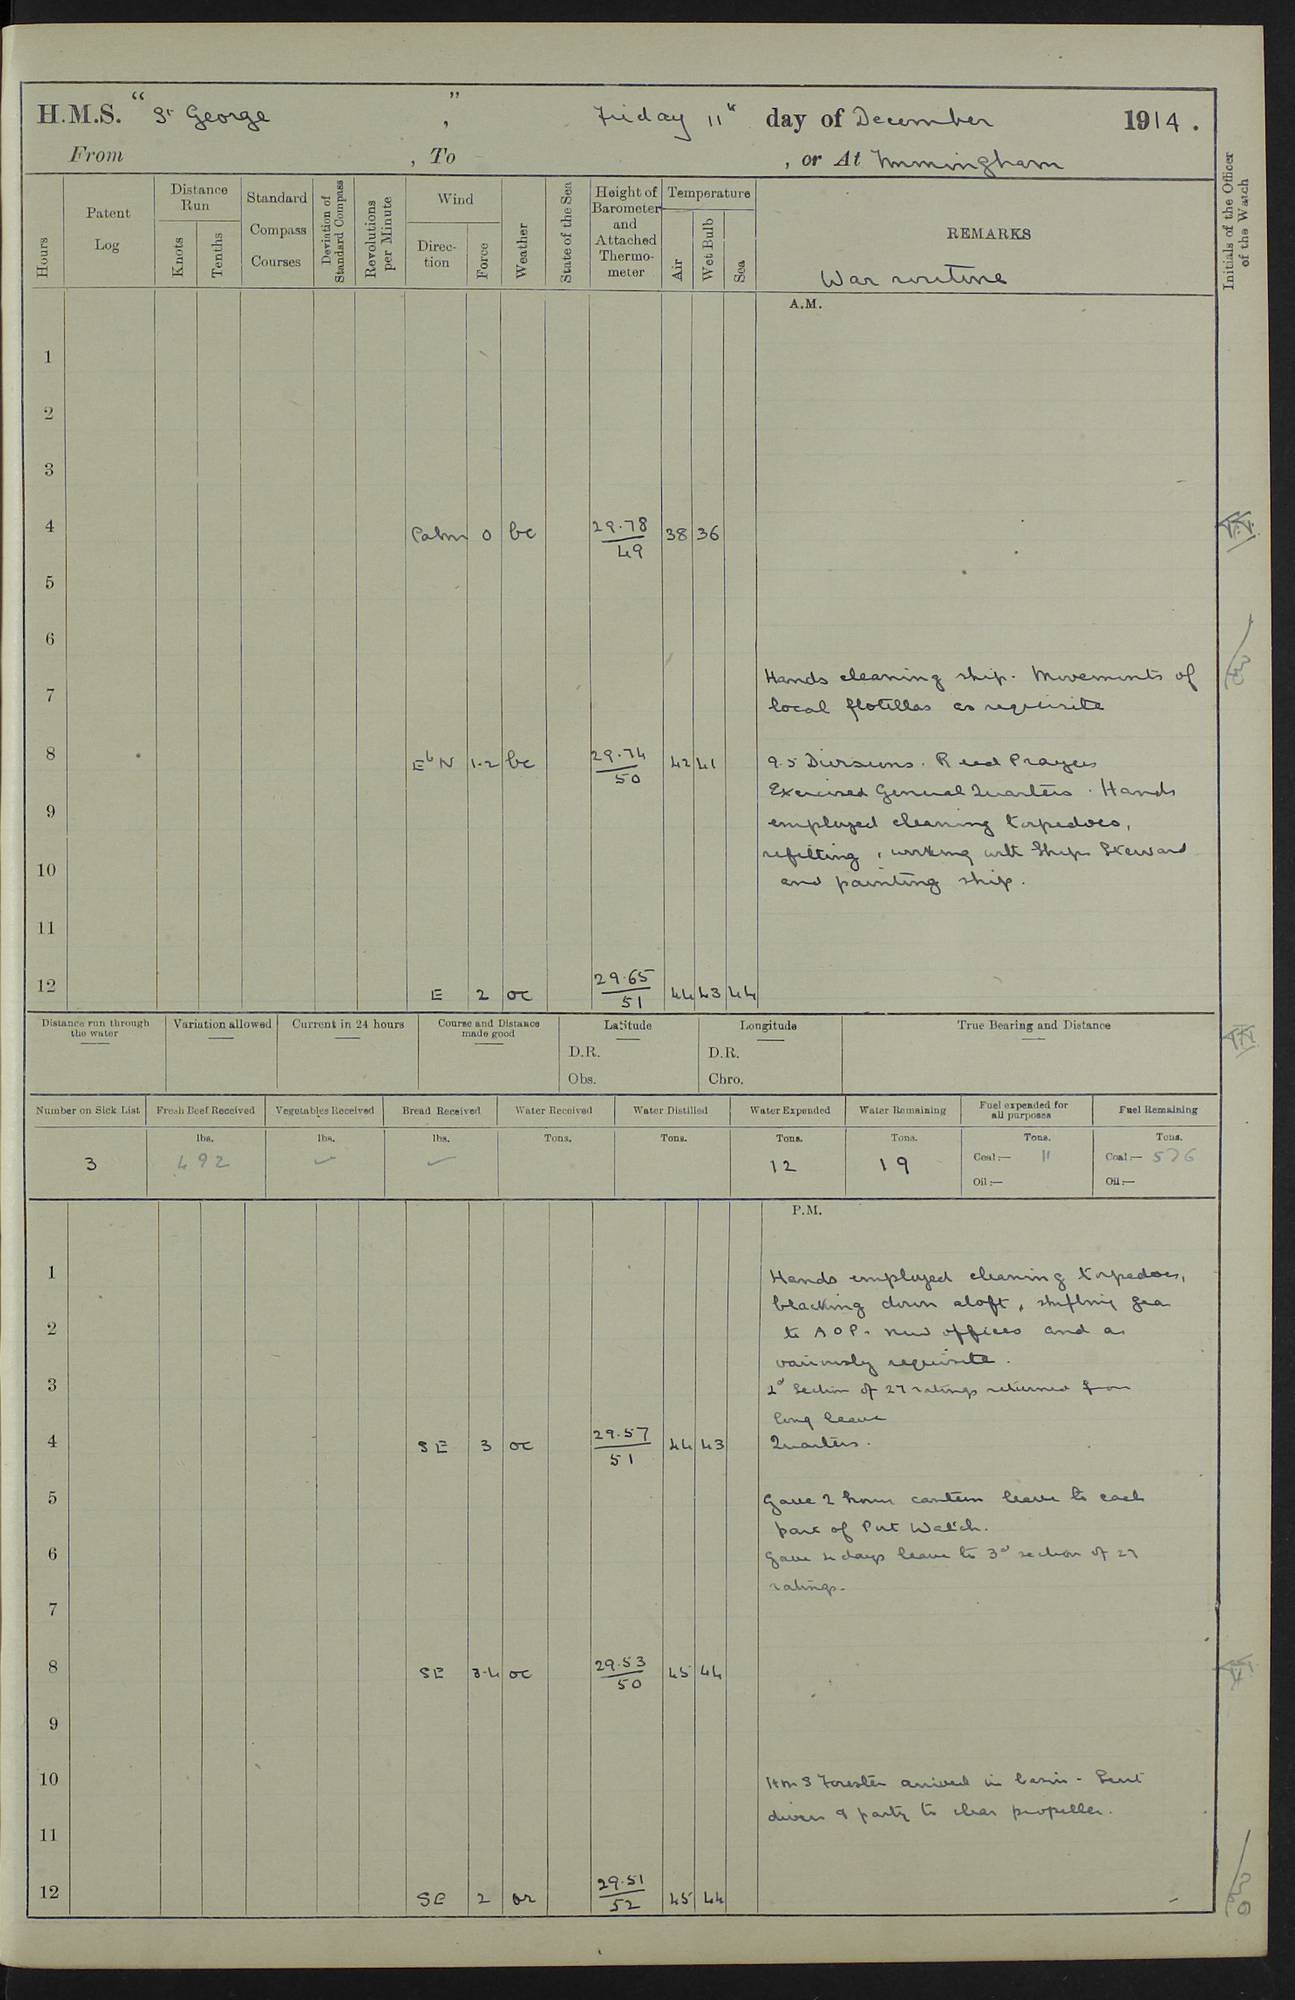 H.M.S. "St George", Friday 11th day of December 1914.
From , To , or At Immingham
Hours
Patent Log
Distance Run
Knots
Tenths
Standard Compass Courses
Deviation of Standard Compass
Revolutions per Minute
Wind
Direction
Force
Weather
State of the Sea
Height of Barometer and Attached Thermometer
Temperature
Air
Wet Bulb
Sea
REMARKS
War routine
Initials of the Officer of the Watch
A.M.
1
2
3
4 Calm 0 bc 29.78/49 38 36
5
6
Hands cleaning ship. Movements of
7
local flotillas as requisite
8 EbN 1-2 bc 29.74/50 42 41 9.5 Divisions. Read Prayers
Exercised General Quarters. Hands
9
employed cleaning torpedoes,
refitting, working with Ships Steward
10
and painting ship.
11
12 E 2 oc 29.65/51 44 43 44
Distance run through the water
Variation allowed
Current in 24 hours
Course and Distance made good
Latitude
D.R.
Obs.
Longitude
D.R.
Chro.
True Bearing and Distance
Number on Sick List
Fresh Beef Received
Vegetables Received
Bread Received
Water Received
Water Distilled
Water Expended
Water Remaining
Fuel expended for all purposes
Fuel Remaining
lbs. lbs. lbs. Tons. Tons. Tons. Tons. Tons. Tons.
3 492 12 19 Coal:— 11 Coal:— 576
Oil:— Oil:—
P.M.
1 Hands employed cleaning torpedoes,
blacking down aloft, shifting gear
2 to A O P. new offices and as
variously requisite.
3 2d Section of 27 ratings returned from
long leave
4 SE 3 oc 29.57/51 44 43 Quarters.
5 Gave 2 hours canteen leave to each
part of Port Watch.
6 Gave 4 days leave to 3d section of 27
ratings.
7
8 SE 3-4 oc 29.53/50 45 44
9
10 HMS Forester arrived in basin - Sent
divers & party to clear propeller.
11
12 SE 2 or 29.51/52 45 44